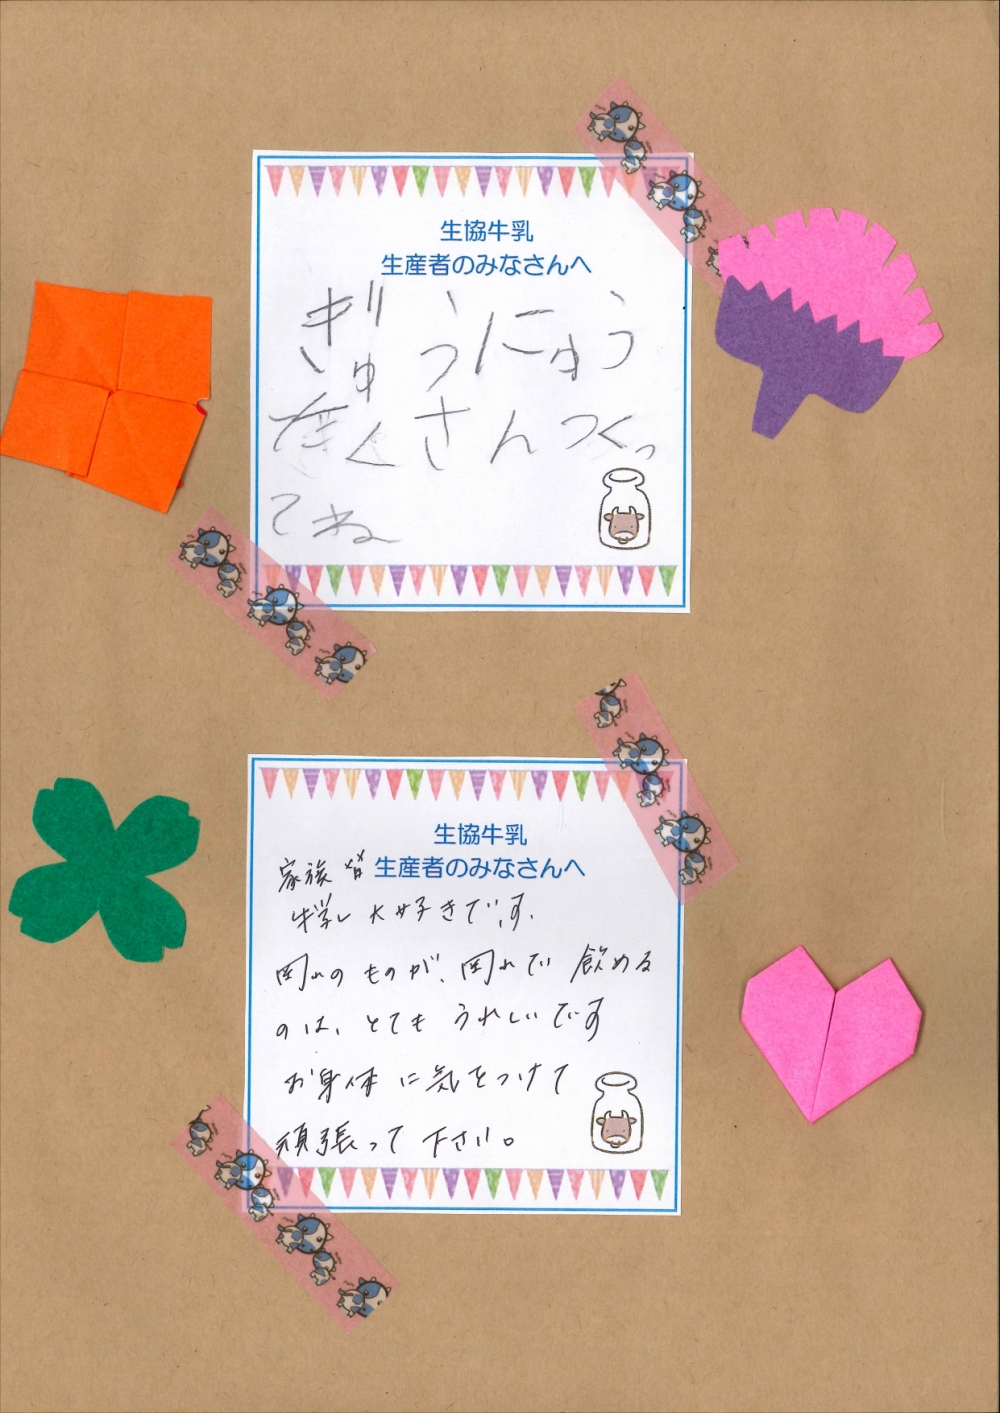 生協牛乳
生産者のみなさんへ
ぎゅうにゅう
たくさんつくっ
てね
生協牛乳
生産者のみなさんへ
家族皆
牛乳大好きです.
岡山のものが、岡山で飲める
のは、とてもうれしいです
お身体に気をつけて
頑張って下さい。